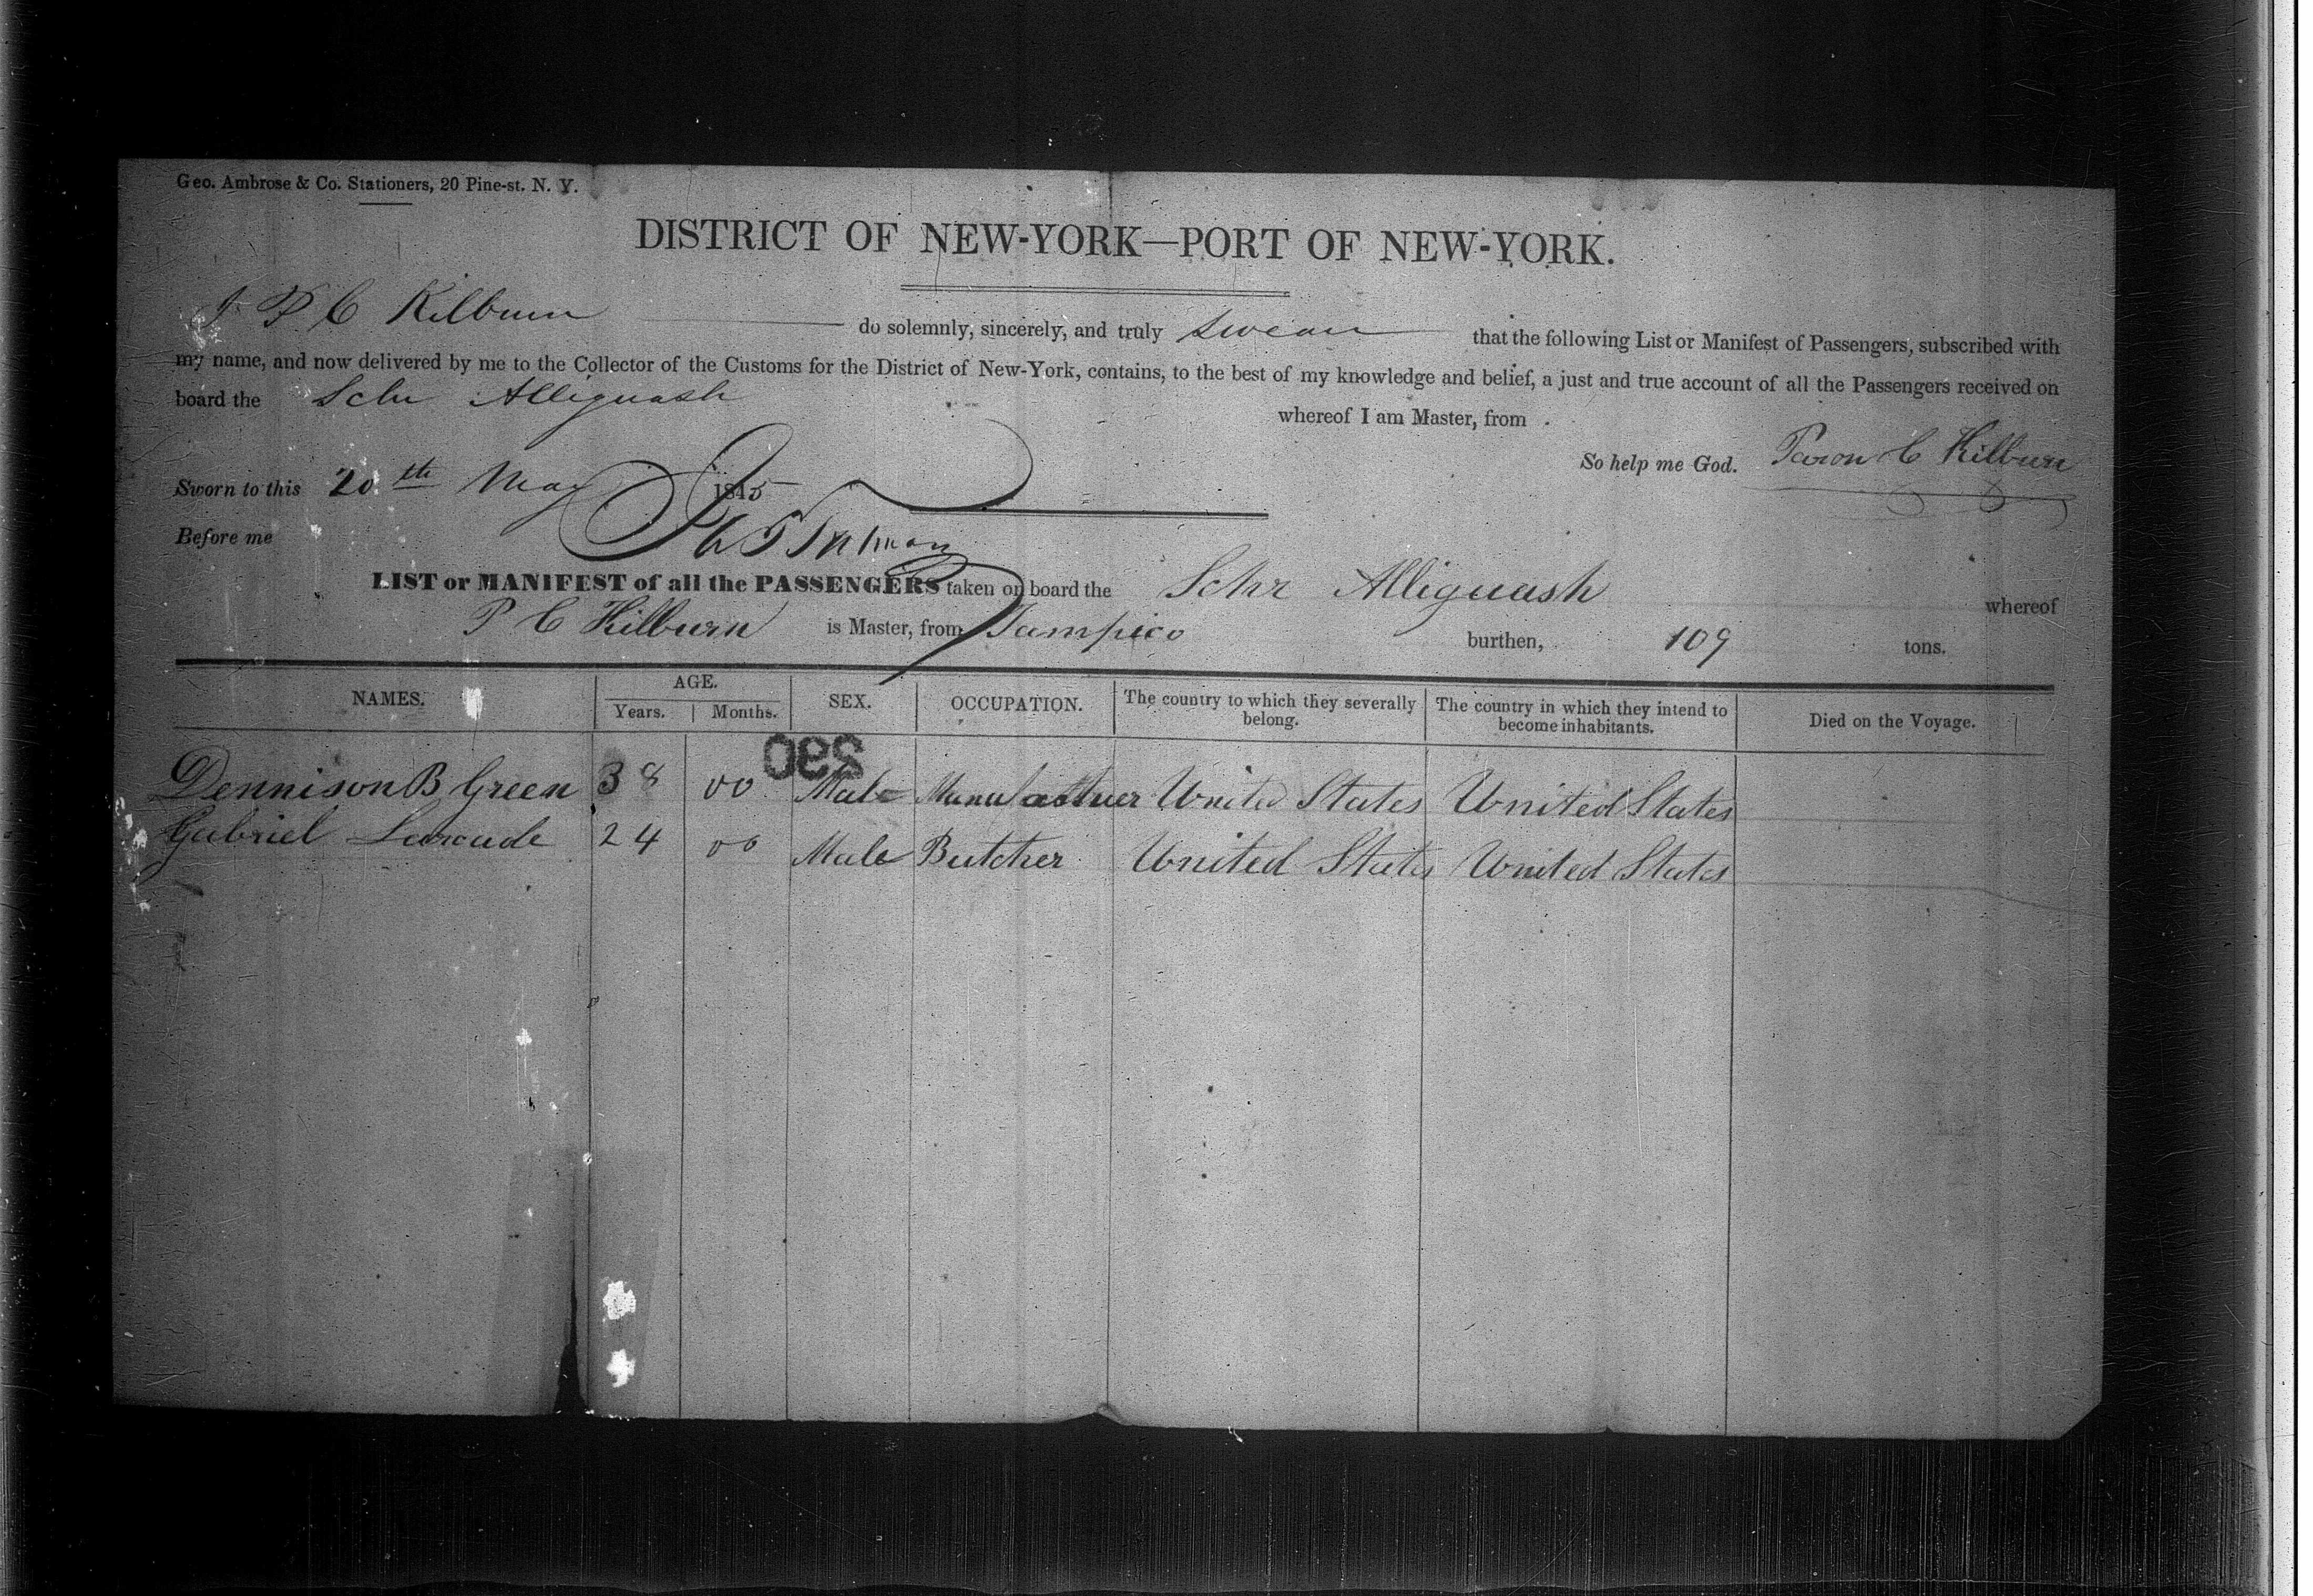 Geo. Ambrose & Co. Stationers, 20 Pine-st. N. Y.
DISTRICT OF NEW-YORK—PORT OF NEW-YORK.
I P C Kilburn do solemnly, sincerely, and truly swear that the following List or Manifest of Passengers, subscribed with
my name, and now delivered by me to the Collector of the Customs for the District of New-York, contains, to the best of my knowledge and belief, a just and true account of all the Passengers received on
board the Schr Alliguash whereof I am Master, from .
So help me God. C Kilburn
Sworn to this 20th May 1845
Before me
LIST or MANIFEST of all the PASSENGERS taken on board the Schr Alliguash whereof
P C Kilburn is Master, from Tampico burthen, 109 tons.
NAMES. AGE. Years. Months. SEX. OCCUPATION. The country to which they severally belong. The country in which they intend to become inhabitants. Died on the Voyage.
290
Dennison B Green 38 00 Male Manufactuer United States United States
Gabriel 24 00 Male Butcher United States United States